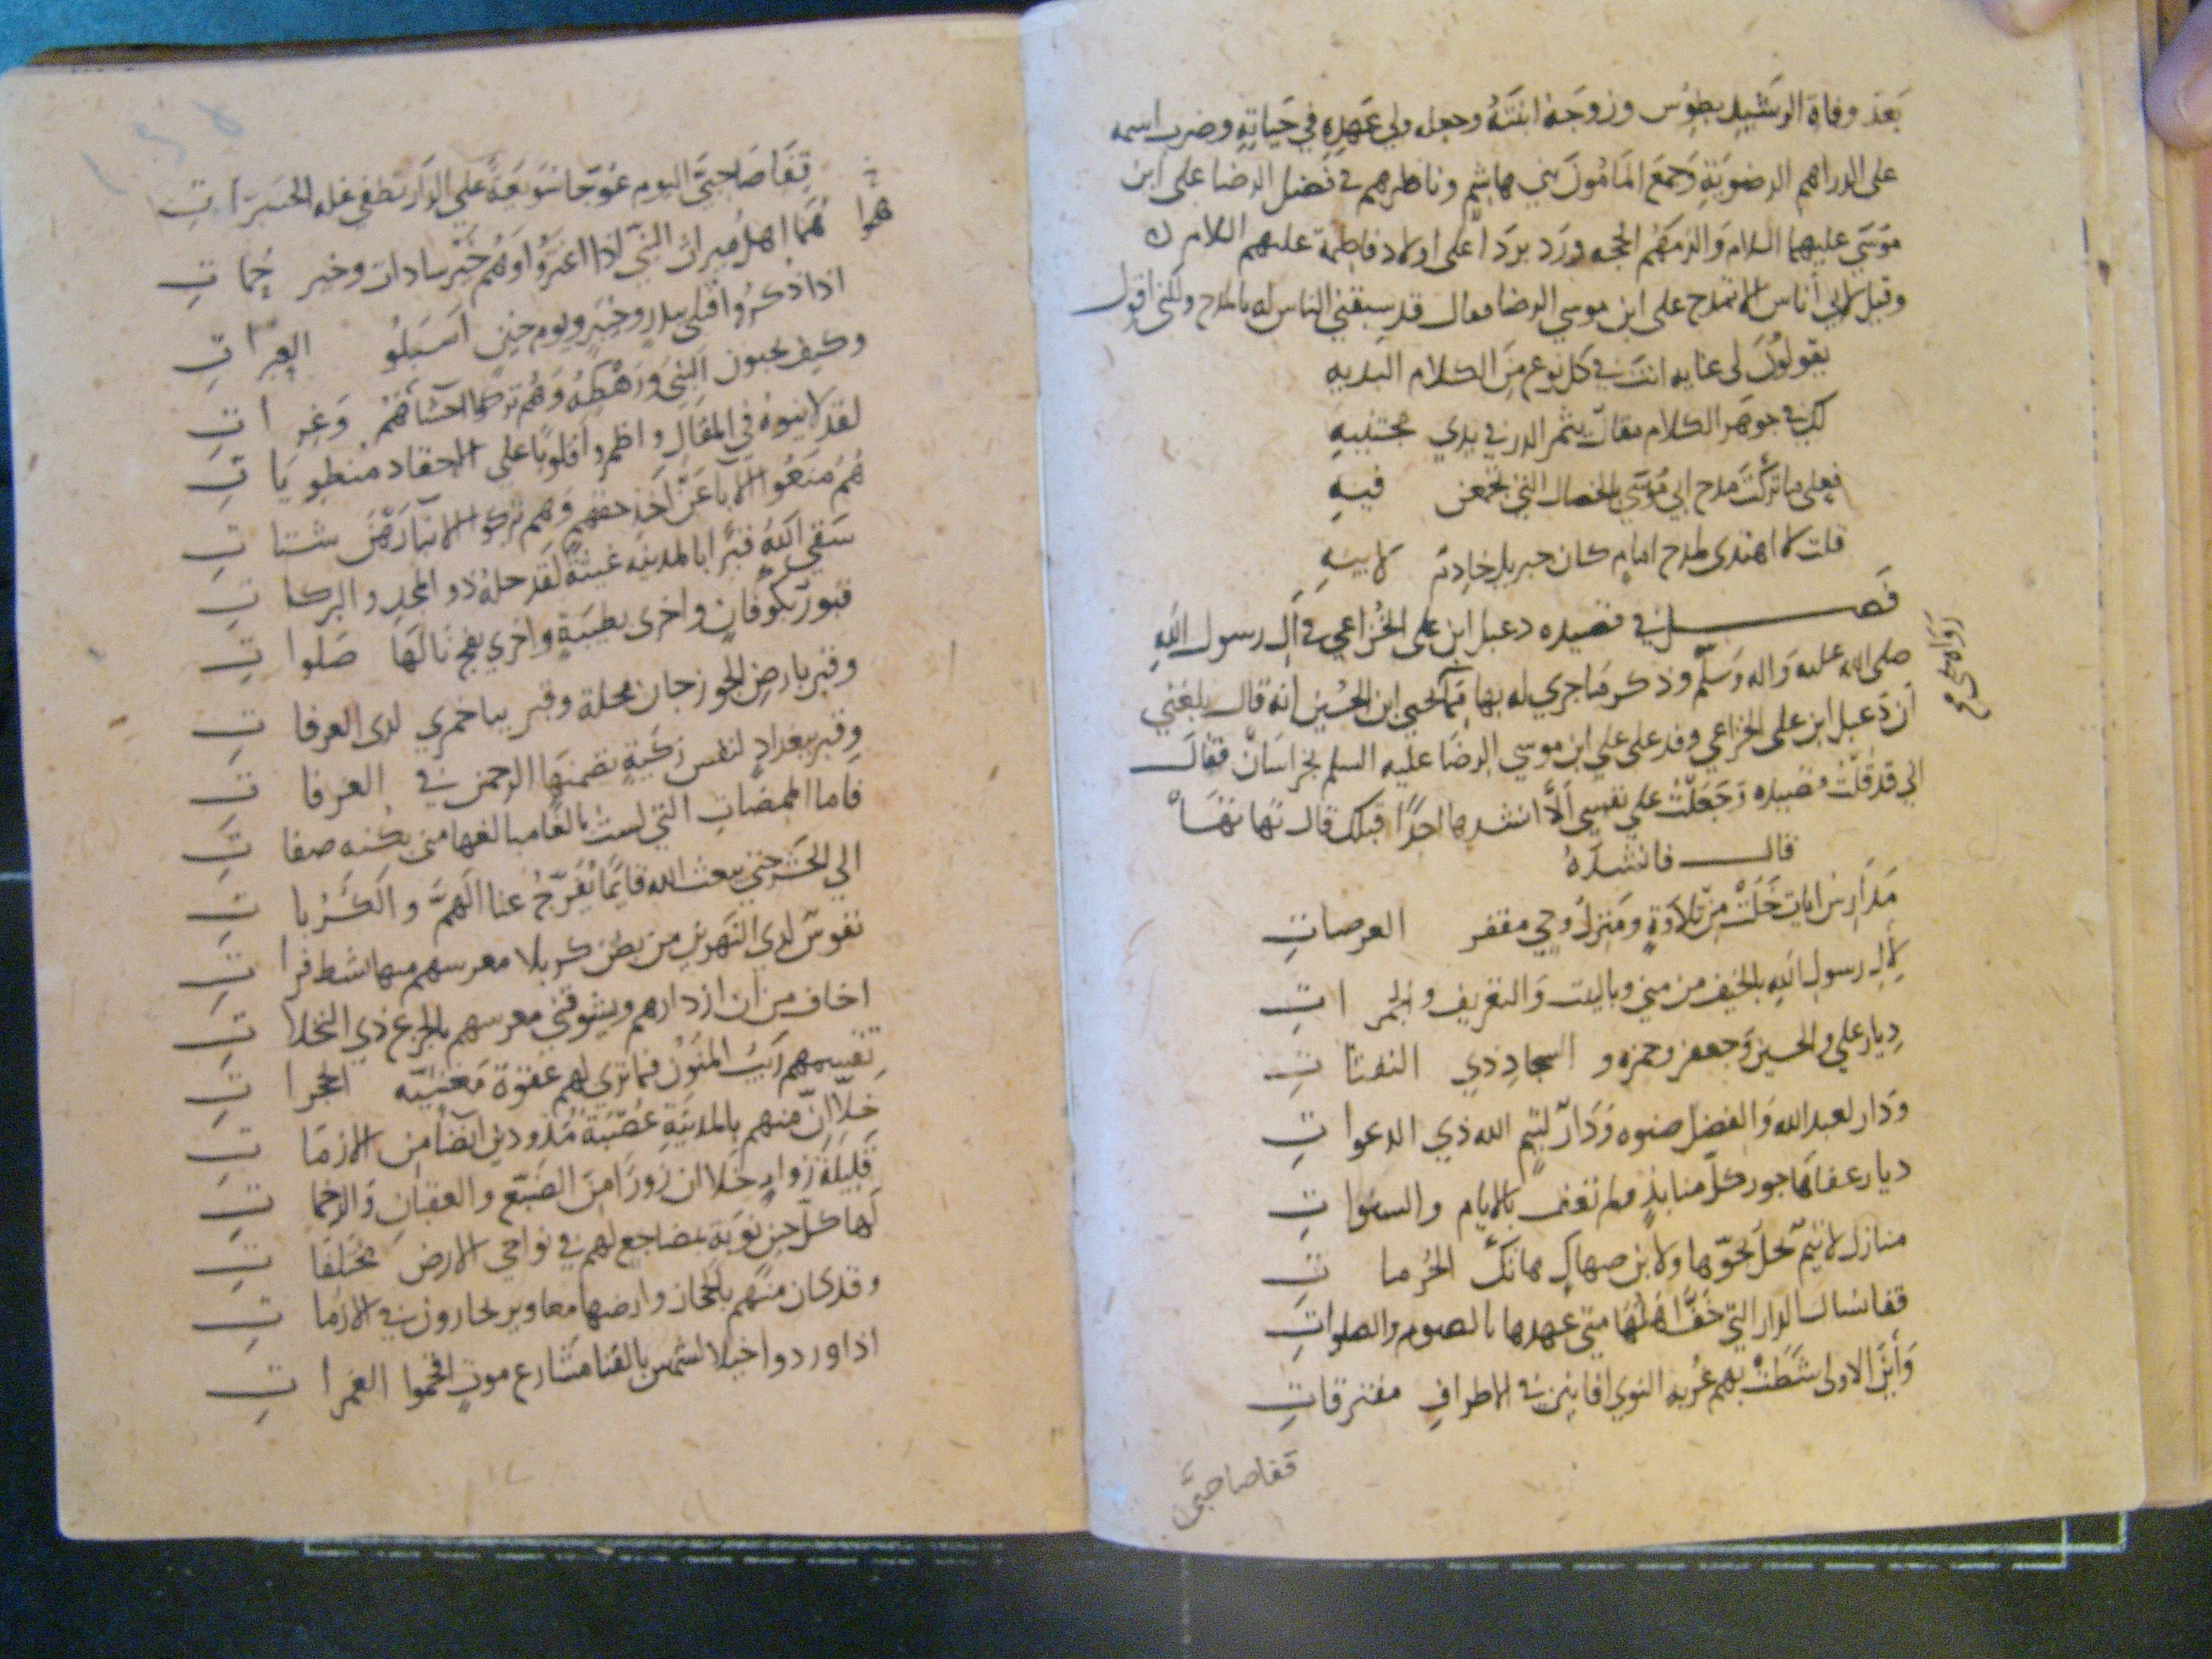 بَعدَ وفاة الرشيد بطوس وزوجَه ابنتَهُ وجعله ولي عَهدِهِ في حَيَاتِهِ وضرب اسمه
على الدراهم الرضويَةِ وَجمعَ المَامُونَ بني هاشم وناظرهم في فَضل الرضا على ابن
موسَى عليهما السلام وَالزمَهُم الحجه وَرَد برَدا على اولاد فاطمة عليهم السلام
وقيل لابي أناس الا تمدح على ابن موسي الرضا فقال قد سبقني الناس له بالمدح ولكني اقول
يقولوُنَ لي عنايه انتَ في كل نوع مِنَ الكلام البديهِ
لك في جوهَر الكلام مقالٌ يثمر الدر في يدي مجتنيهِ
فعلى ما تركتَ مدح ابي مُوسَي بالخصال التي تجمعن فيهِ
قلت لا اهتدى لمدح امامٍ كان جبريل خادِمَ لابيهِ
فَصل في قصيده دعبل ابن على الخُزاعي في آل رسول اللهِ
صلى الله عليه وَاله وَسَلّم وذكر مَا جري له بها فيما يحيى ابن الحُسين انه قال بلغني
رَوَاه يحيى ع
أن دَعبل ابن على الخزاعي وفد على علي ابن موسي الرضا عليه السلم بخراسَان فقال
اني قد قلتُ قصيده وَجَعَلتُ على نفسي أَلاَّ انشدها احدًا قبلك قال تها تهَا
قال فانشدَهُ
مَدَارِسُ ايات خَلَتْ مِنْ تِلاوَةٍ ومَنزلُ وحي مقفر العرصاتِ
لِالِ رسولِ اللهِ بالخيف من مني وبالبيت وَالتعريف والجمراتِ
دِيار علي والحسين وَجعفر وحمزه و السجادِ ذي الثفناتِ
ودَار لعبد الله وَالفضل صنوه وَدَارٌ لنبيّ الله ذي الدعواتِ
ديار عفاهَا جور كلّ منابذٍ ولم تعف بالايام والسنواتِ
منازل لا تيمٌ تحل بجوّها ولا ابن صهاك هاتك الحُرماتِ
قفا نسال الدار التي خَفَّ اهلُهَا متى عهدها بالصوم والصلواتِ
وَأينَ الاولى شَطَّتْ بهم غُربه النوي افانين في الاطرافِ مفترقاتِ
قفا صاحبَّي
قِفَا صَاحِبَيَّ اليوم عُوّجا سُوَيعَةً علي الدار نطفي غله الحَسَراتِ
هُمَا اهلُ ميراث النبيّ اذا اعتَزَوُا وَهُم خَيْر سادات وخير حُماتِ
هموا
اذا ذكرُوا قتلى ببدرٍ وخيبَرٍ ويوم حنينٍ اَسبَلُو العبراتِ
وكيف يحبون النبيَ ورَهْطَهُ وَهُم تركوا احشاءَهُمْ وَغراتِ
لقد لاينوهُ في المقالِ واظمروا قلوبًا على الاحقاد منطوياتِ
هُمُ مَنَعُوا الابا عَنْ أخذ حقهم وَهم تركوا الابنا رَهْنَ شتاتِ
سَقي اللهُ قبرًا بالمدينه غيثهُ لَقد حلهُ ذو المجد والبركاتِ
قبورٌ بكوفانٍ واخرى بطيبَةٍ واخري بفخ نالهَا صَلواتِ
وقبر بارضِ الجوزجان محلة وقبر بباخمري لدى العرفاتِ
وقبر ببغدادٍ لنفس زكيَةٍ تضمنهَا الرحمن في الغرفاتِ
فاما الممضّاتِ التي لستُ بالغا مبالغها مني بكنه صفاتِ
الي الحشر حتي يبعث الله قايمًا يُفَرّجُ عنا الهمَّ والكَرباتِ
نفوسٌ لدي النهرين من بطن كربلا معرسهم منها بشط فراتِ
اخاف مِن ان ازدارهم ويشوقني معرسهم بالجزع ذي النخلاتِ
تقسمهم رَيبُ المنُونْ فما تري لهم عقوة مَغشيَّه الحجراتِ
خلا أنّ منهم بالمدينَةِ عُصْبَةً مَذودين انضاءً مِنَ الازمَاتِ
قليلَةَ زوارٍ خلا ان زورًا مِنَ الضَبع والعقبان وَالرخماتِ
لَها كلَّ حينٍ نوبَة بمضاجع لهم في نواحي الارض مختلفاتِ
وقد كان منهم بالحجاز وارضها مغاوير نحارون في الازماتِ
اذا وردوا خيلا لشمس بالقنا مشارع موتٍ اقحموا الغمراتِ